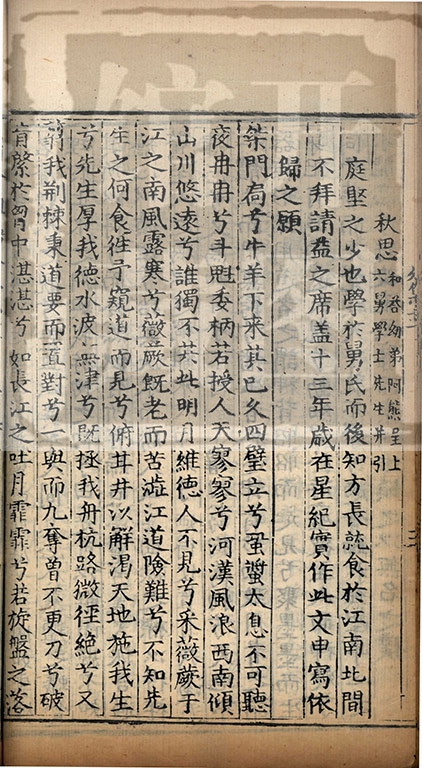 秋思和答幼弟阿熊呈上六舅學士先生并引
庭堅之少也學於舅氏而後知方長就食於江南北間
不拜請益之席盖十三年歲在星紀實作此文申寫依
歸之願
柴門扃兮牛羊下来其已久四壁立兮蛩螿太息不可聽
夜冉冉兮斗魁委柄若授人天寥寥兮河漢風浪西南傾
山川悠遠兮誰獨不共此明月維德人不見兮采薇蕨于
江之南風露寒兮薇蕨既老而苦澁江道險難兮不知先
生之何食徃予窺道而見兮俯甘井以解渴天地施我生
兮先生厚我德水波無津兮既拯我舟杭路微徑絶兮又
翦我荆棘秉道要而置對兮一與而九奪曽不更刀兮破
肯綮於胷中湛湛兮如長江之吐月霏霏兮若旋盤之落